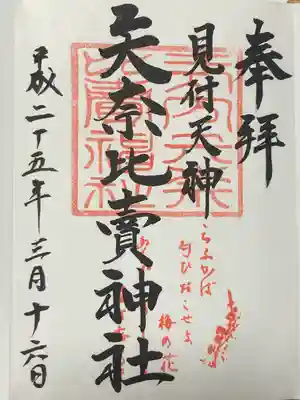 奉拝
見付天神
矢奈比賣神社
平成二十五年三月十六日
こちふかば
匂ひおこせよ
梅の花